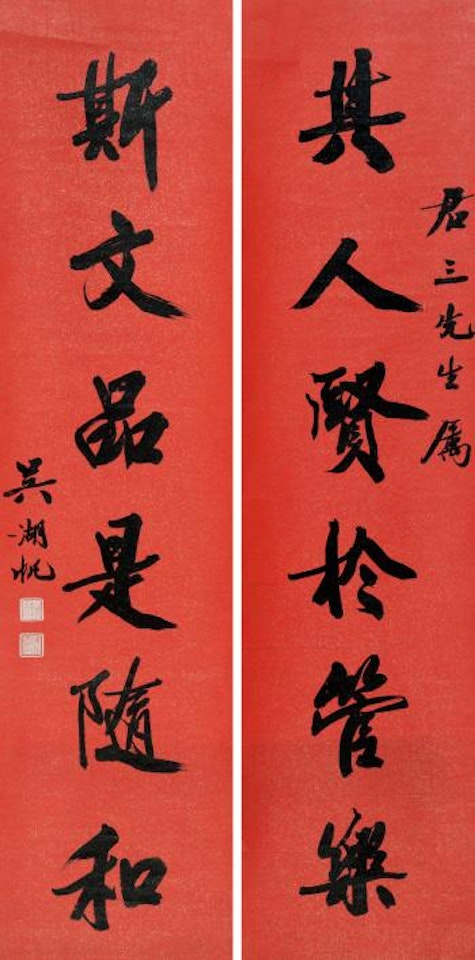 其人賢於管樂
君三先生属
斯文品是隨和
吳湖帆